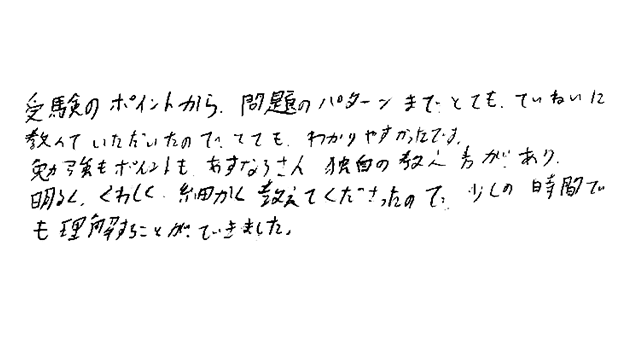 受験のポイントから、問題のパターンまで、とても、ていねいに
教えていただいたので、とても、わかりやすかったです。
勉強もポイントも、あすなろさん 独自の教え方があり、
明るく、くわしく、細かく教えてくださったので、少しの時間で
も理解することができました。